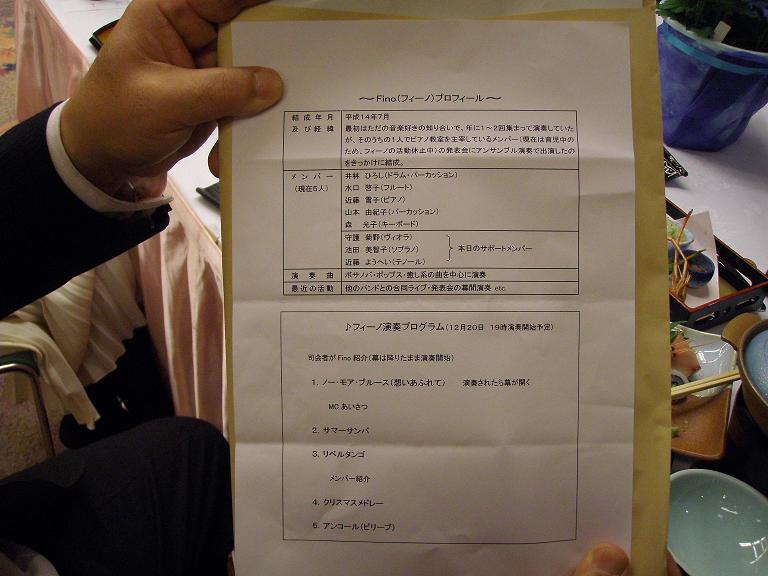 ～Fino(フィーノ)プロフィール～
結成年月 平成14年7月
及び経緯 最初はただの音楽好きの知り合いで、年に1～2回集まって演奏していた
が、そのうちの1人でピアノ教室を主宰しているメンバー(現在は育児中の
ため、フィーノの活動休止中)の発表会にアンサンブル演奏で出演したの
をきっかけに結成。
メンバー 井林 ひろし(ドラム・パーカッション)
(現在5人) 水口 啓子(フルート)
近藤 雪子(ピアノ)
山本 由紀子(パーカッション)
森 光子(キーボード)
守護 菊野(ヴィオラ)
池田 美智子(ソプラノ) 本日のサポートメンバー
近藤 ようへい(テノール)
演奏曲 ボサノバ・ポップス・癒し系の曲を中心に演奏
最近の活動 他のバンドとの合同ライブ・発表会の幕間演奏 etc.
♪フィーノ演奏プログラム(12月20日 19時演奏開始予定)
司会者が Fino 紹介(幕は降りたまま演奏開始)
1. ノー・モア・ブルース(想いあふれて) 演奏されたら幕が開く
MC あいさつ
2. サマーサンバ
3. リベルタンゴ
メンバー紹介
4. クリスマスメドレー
5. アンコール(ビリーブ)